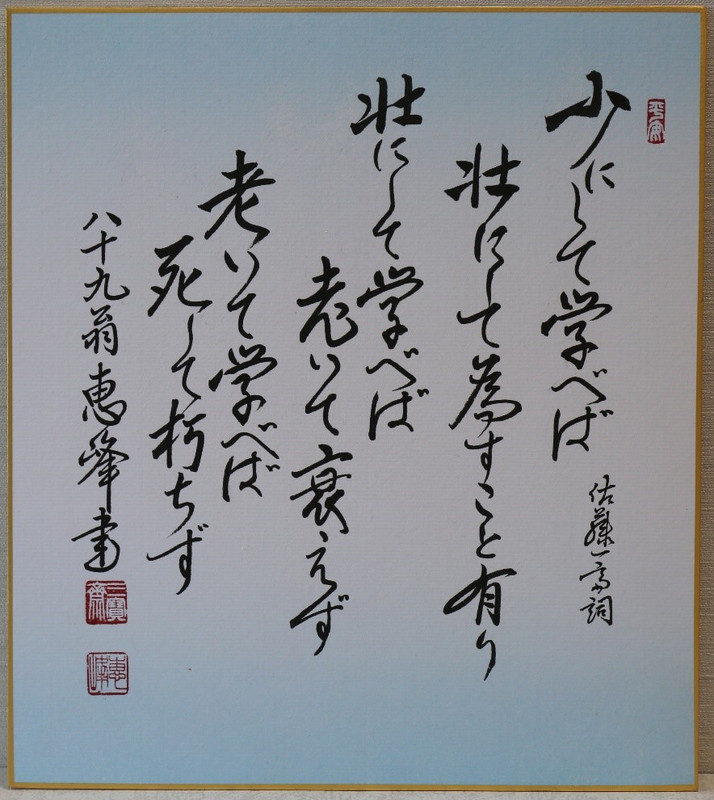 少にして学べば
佐藤一斎詞
壮にして為すこと有り
壮にして学べば
老いて衰えず
老いて学べば
死して朽ちず
八十九翁恵峰書
恵峰